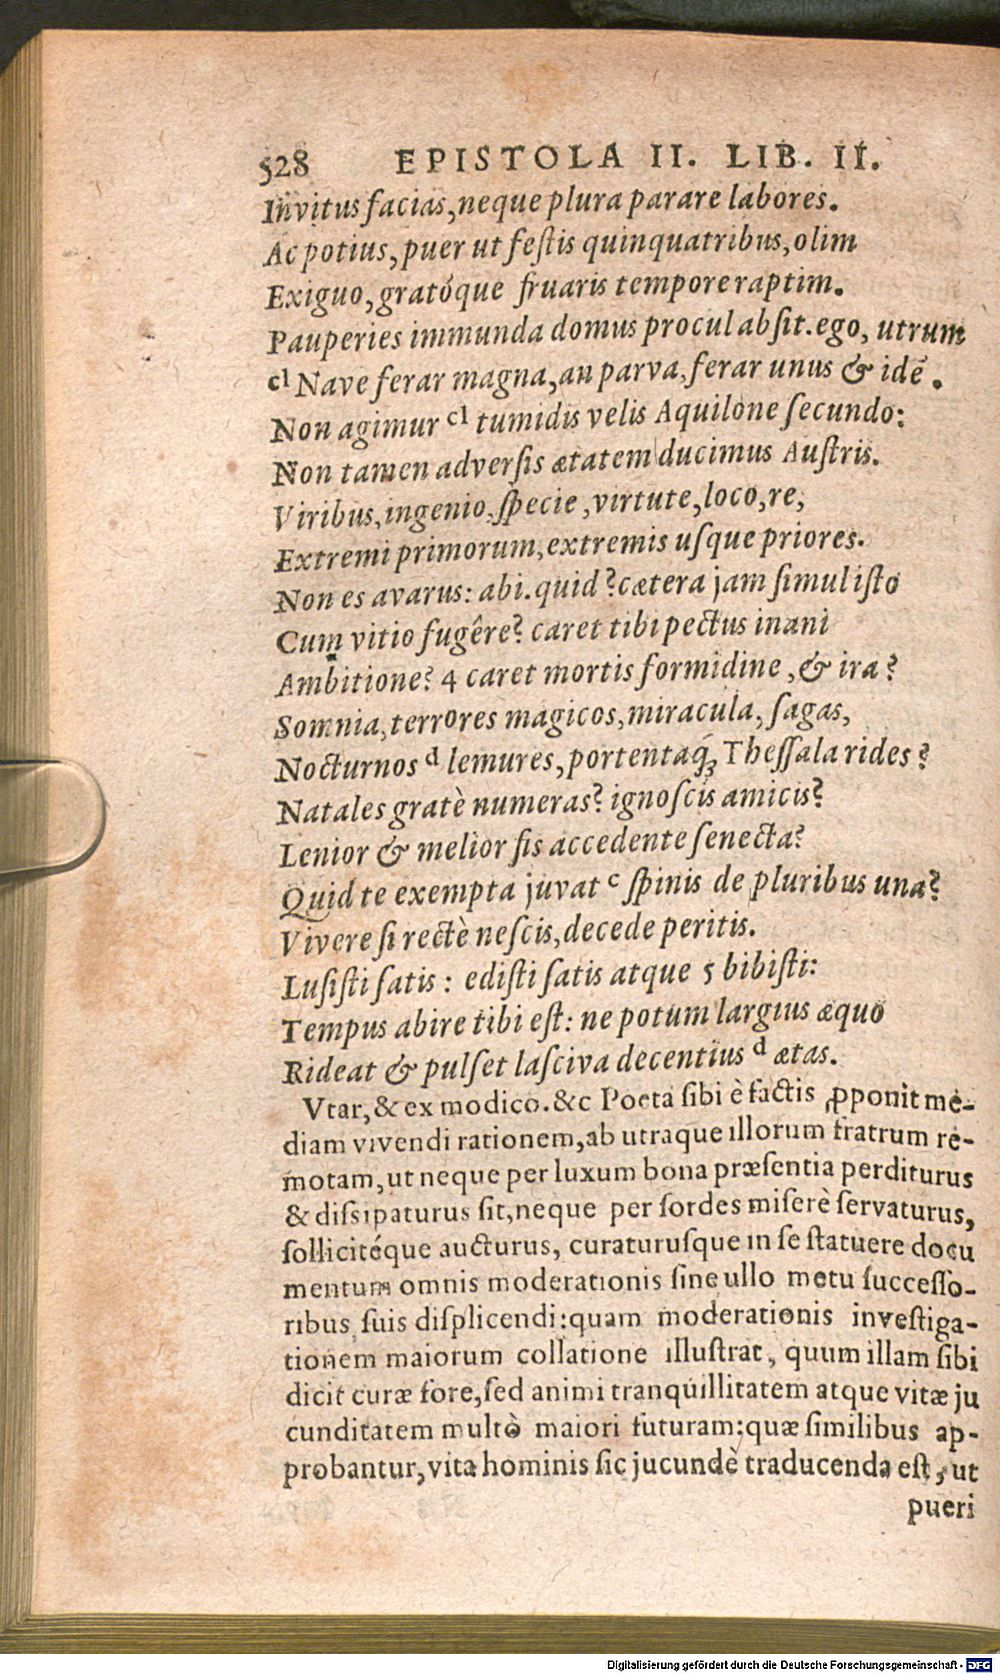 528 EPISTOLA II. LIB. II.
Invitus facias, neque plura parare labores.
Ac potius, puer ut feſtis quinquatribus, olim
Exiguo, gratóque fruaris tempore raptim.
Pauperies immunda domus procul abſit. ego, utrum
cl Nave ferar magna, an parva, ferar unus & idē.
Non agimur cl tumidis velis Aquilone ſecundo:
Non tamen adverſis ætatem ducimus Auſtris.
Viribus, ingenio, ſpecie, virtute, loco, re,
Extremi primorum, extremis uſque priores.
Non es avarus: abi. quid? cætera jam ſimul iſto
Cum vitio fugêre? caret tibi pectus inani
Ambitione? 4 caret mortis formidine, & ira?
Somnia, terrores magicos, miracula, ſagas,
Nocturnos d lemures, portentaq́ꝫ Theſſala rides?
Natales gratè numeras? ignoſcis amicis?
Lenior & melior ſis accedente ſenecta?
Quid te exempta juvat c ſpinis de pluribus una?
Vivere ſi rectè neſcis, decede peritis.
Luſiſti ſatis: ediſti ſatis atque 5 bibiſti:
Tempus abire tibi eſt: ne potum largius æquo
Rideat & pulſet laſciva decentius d ætas.
Vtar, & ex modico. &c Poeta ſibi è factis ꝓponit me-
diam vivendi rationem, ab utraque illorum fratrum re-
motam, ut neque per luxum bona præſentia perditurus
& diſsipaturus ſit, neque per ſordes miſerè ſervaturus,
ſollicitéque aucturus, curaturuſque in ſe ſtatuere docu
mentum omnis moderationis ſine ullo metu ſucceſſo-
ribus ſuis diſplicendi: quam moderationis inveſtiga-
tionem maiorum collatione illuſtrat, quum illam ſibi
dicit curæ fore, ſed animi tranquillitatem atque vitæ ju
cunditatem multò maiori futuram: quæ ſimilibus ap-
probantur, vita hominis ſic jucundè traducenda eſt, ut
pueri
Digitalisierung gefördert durch die Deutsche Forschungsgemeinschaft - DFG